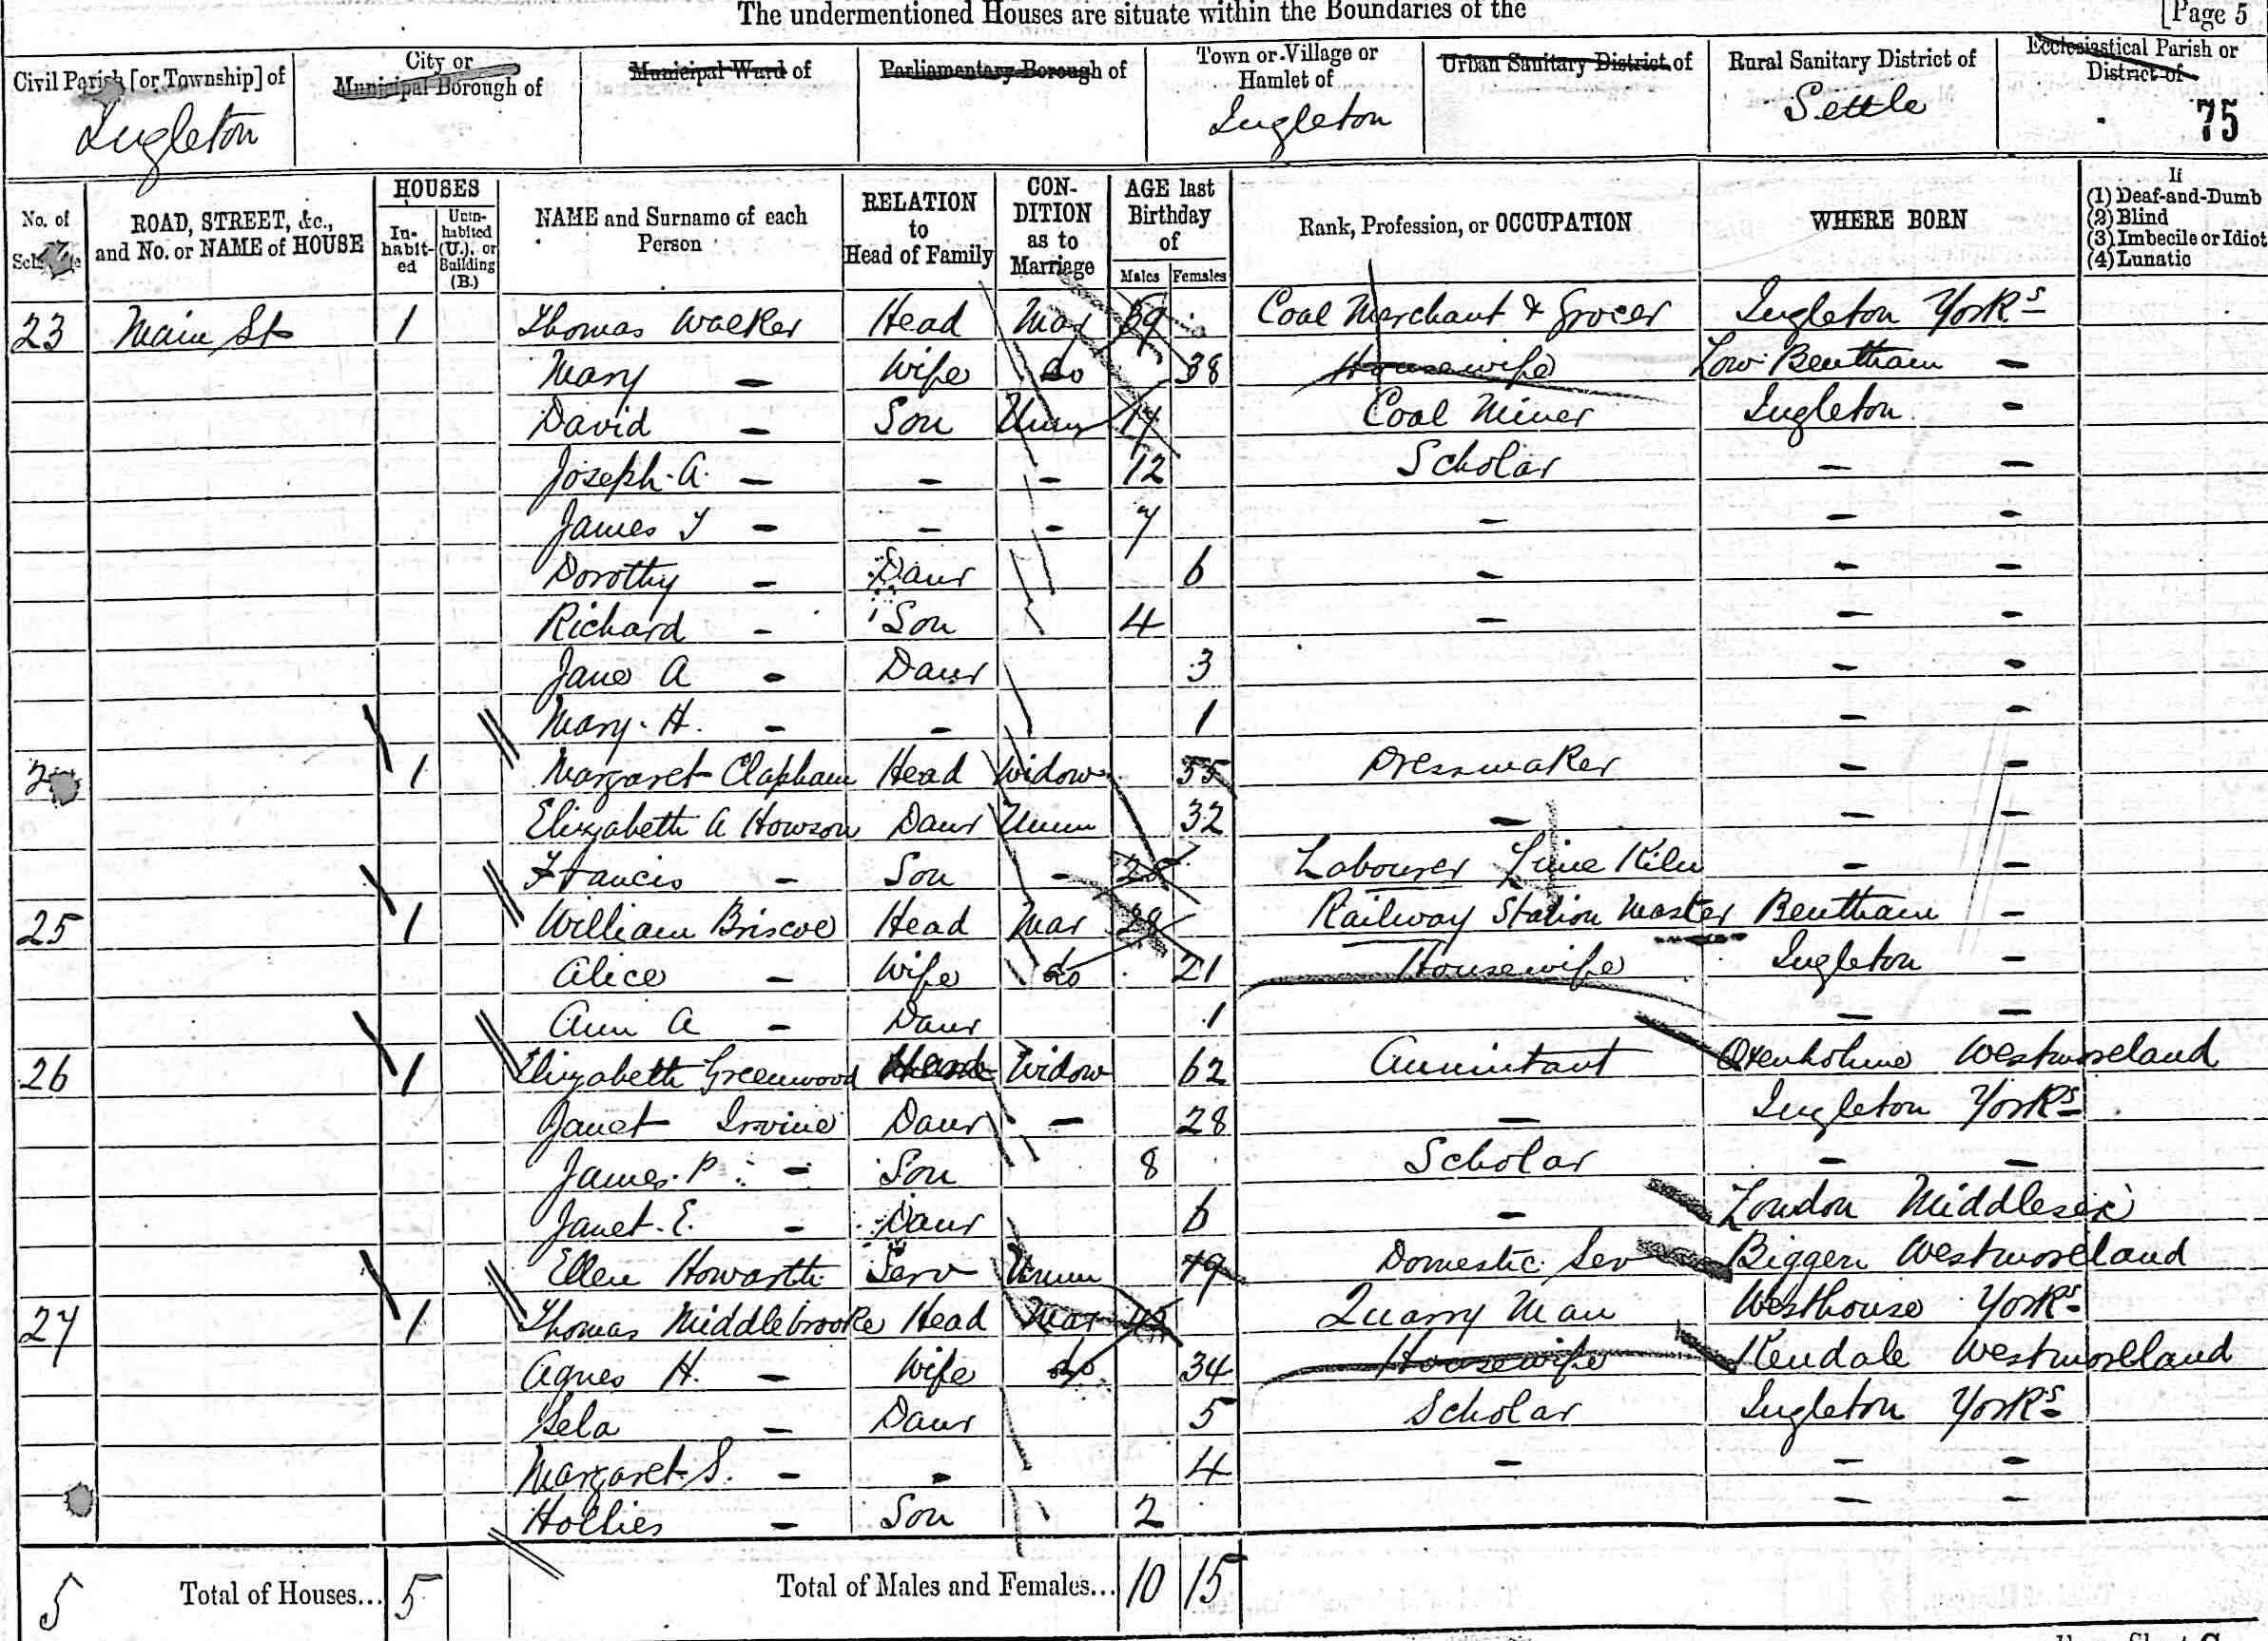 The undermentioned Houses are situate within the Boundaries of the [Page 5
Civil Parish [or Township] of City or Municipal Borough of Municipal Ward of Parliamentary Borough of Town or Village or Hamlet of Urban Sanitary District of Rural Sanitary District of Ecclesiastical Parish or District of
Ingleton Ingleton Settle 75
No. of ROAD, STREET, &c., and No. or NAME of HOUSE HOUSES In-habit-ed Unin-habited (U.), or Building (B.) NAME and Surname of each Person RELATION to Head of Family CON-DITION as to Marriage AGE last Birthday of Males Females Rank, Profession, or OCCUPATION WHERE BORN If (1) Deaf-and-Dumb (2) Blind (3) Imbecile or Idiot (4) Lunatic
23 Main St 1 Thomas Walker Head Mar 39 Coal Merchant & Grocer Ingleton Yorks
Mary - Wife do 38 Housewife Low Bentham -
David - Son Unm 14 Coal Miner Ingleton -
Joseph A. - - - 12 Scholar - -
James T - - - 7 - - -
Dorothy - Daur 6 - - -
Richard - Son 4 - - -
Jane A - Daur 3 - -
Mary H. - - 1 - -
1 Margaret Clapham Head Widow 55 Dressmaker - -
Elizabeth A Howson Daur Unm 32 - - -
Francis - Son - Labourer Lime Kiln - -
25 1 William Briscoe Head Mar 28 Railway Station Master Bentham -
Alice - Wife do 21 Housewife Ingleton -
Ann A - Daur 1 - -
26 1 Elizabeth Greenwood Head Widow 62 Annuitant Oxenholme Westmoreland
Janet Irvine Daur - 28 - Ingleton Yorks
James P. - Son 8 Scholar - -
Janet E. - Daur 6 - London Middlesex
Ellen Howarth Serv Unm 19 Domestic Serv Westmoreland
27 1 Thomas Middlebrooke Head Mar 45 Quarry Man Westhouse Yorks
Agnes H. - Wife do 34 Housewife Kendale Westmoreland
Sela - Daur 5 Scholar Ingleton Yorks
Margaret S. - - 4 - - -
Hollies - Son 2 - -
5 Total of Houses... 5 Total of Males and Females... 10 15